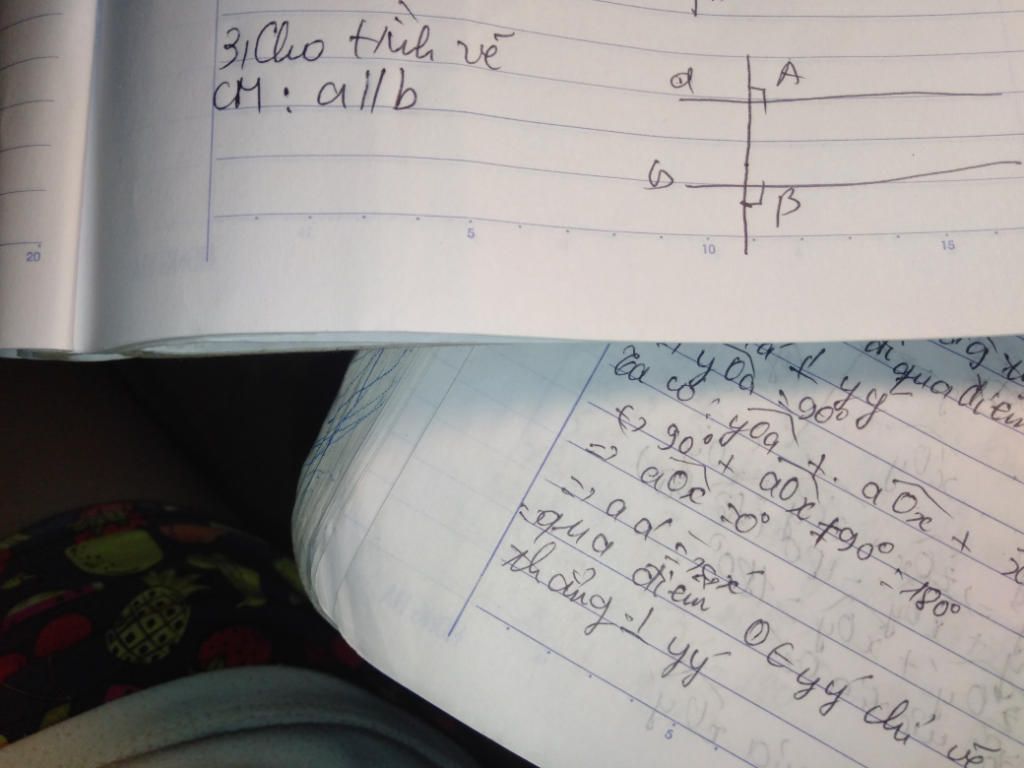 3, Cho tình vẽ
CM: a//b
a
A
b
B
5
10
15
20
đi qua điểm
+ yOa = 90°
Ta có: yOa + aOx +
<=> 90° + aOx + 90° = 180°
=> aOx = 0°
=> aa'
qua điểm O ∈ yy' chỉ vẽ
thẳng ⊥ yy'
5